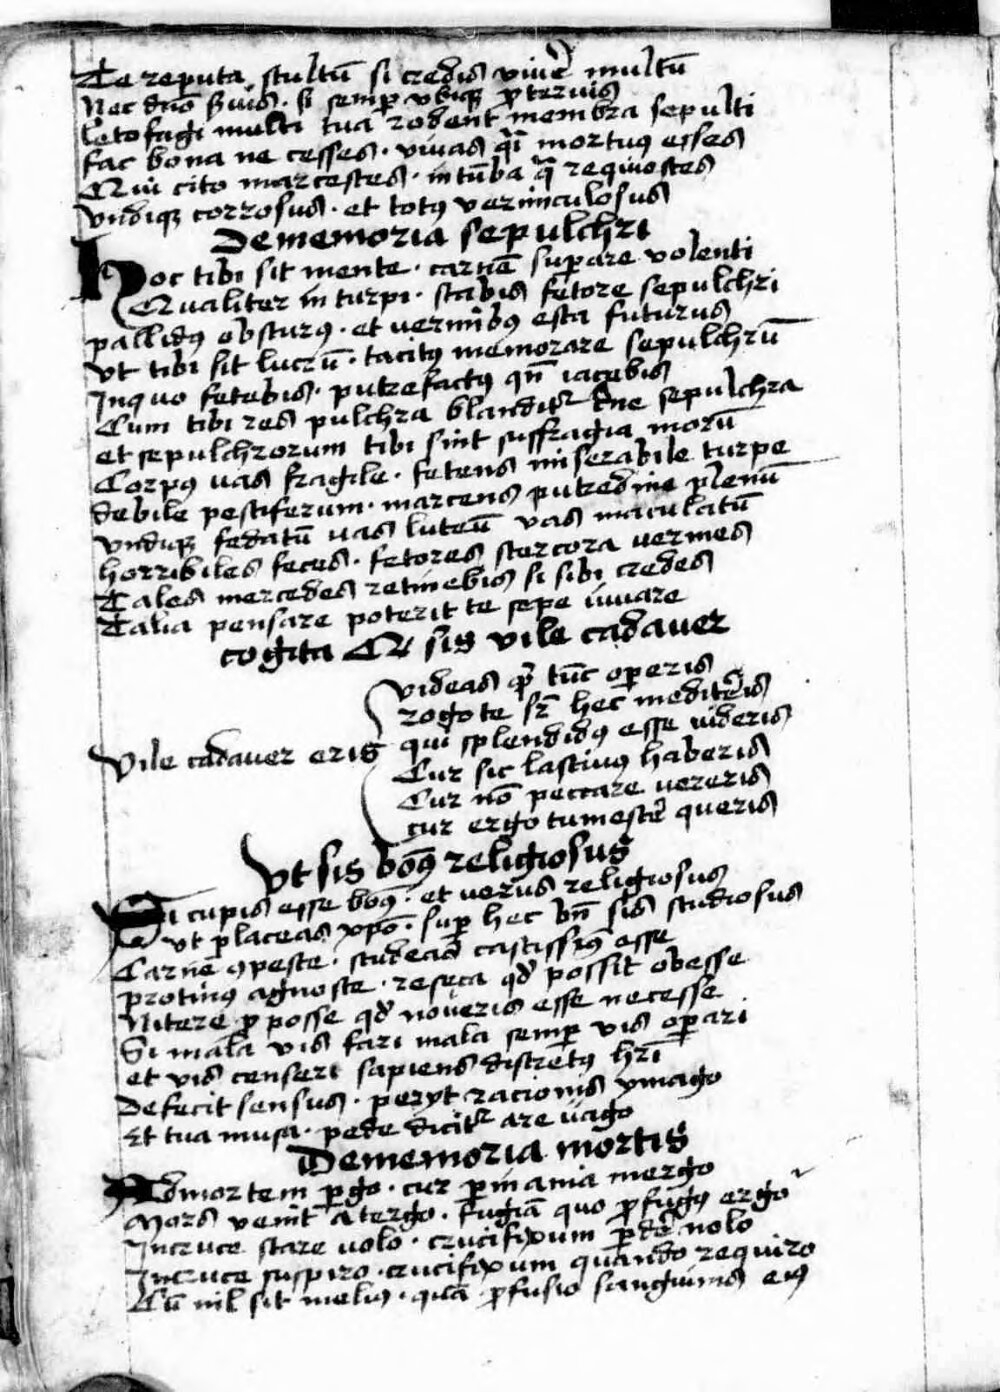 Te reputa stultū si credis viuē multū
Nec dn̄o suis · si semp vbiqꝫ ꝓteruis
letofagi multi tua rodent membra sepulti
fac bona ne cesses · viuas qͥ mortuꝯ esses
Qui cito marcesces · in tūba qͣ requiesces
vndiqꝫ corrosus · et totꝯ verniculosus
De memoria sepulchri
Hoc tibi sit mente · carnē supare volenti
Qualiter in turpi · stabis fetore sepulchri
pallidꝯ obscurꝯ · et vermibꝯ esca futurus
vt tibi sit lucrū · tacitꝯ memorare sepulchrū
In quo fetebis · putrefactꝯ qn̄ iacebis
Cum tibi res pulchra blanditʳ sepulchra
et sepulchrorum tibi sint suffragia morū
Corpꝯ uas fragile · fetens miserabile turpe
debile pestiferum · marcens putredine plenū
vndiqꝫ fedatū uas luteū vas maculatū
horribiles feces · fetores stercora vermes
Tales mercedes retinebis si sibi credes
Talia pensare poterit te sepe iuuare
cogita Qꝛ sis vile cadauer
Vile cadauer eris
videas qͥ tūc operis
rogo te sr̄ hec meditēis
qui splendidꝯ esse uideris
Cur sic lasciuꝯ haberis
Cur nō peccare vereris
cur ergo tumescē queris
Vt sis bonꝯ religiosus
Si cupis esse bonꝯ · et verus religiosus
vt placeas xp̄o · sup hec bn̄ sis studiosus
Carnē ꝯpesce · studeas castissimꝯ esse
protinꝯ agnosce · reseca qd̓ possit obesse
Nitere ꝓ posse qd̓ noueris esse necesse
Si mala vis fari mala semp vis opari
et vis censeri sapiens discretꝯ hr̄i
Defecit sensus · peryt racionis ymago
Et tua musa · pede dicitʳ are uago
De memoria mortis
Ad mortem pgo · cur p inania mergo
Mors venit a tergo · fugiā quo ꝓfugꝯ ergo
In cruce stare uolo · crucifixum pdē nolo
In cruce suspiro · crucifixum quando requiro
Cū nil sit meliꝯ · quā ꝓfusio sanguinis eiꝯ